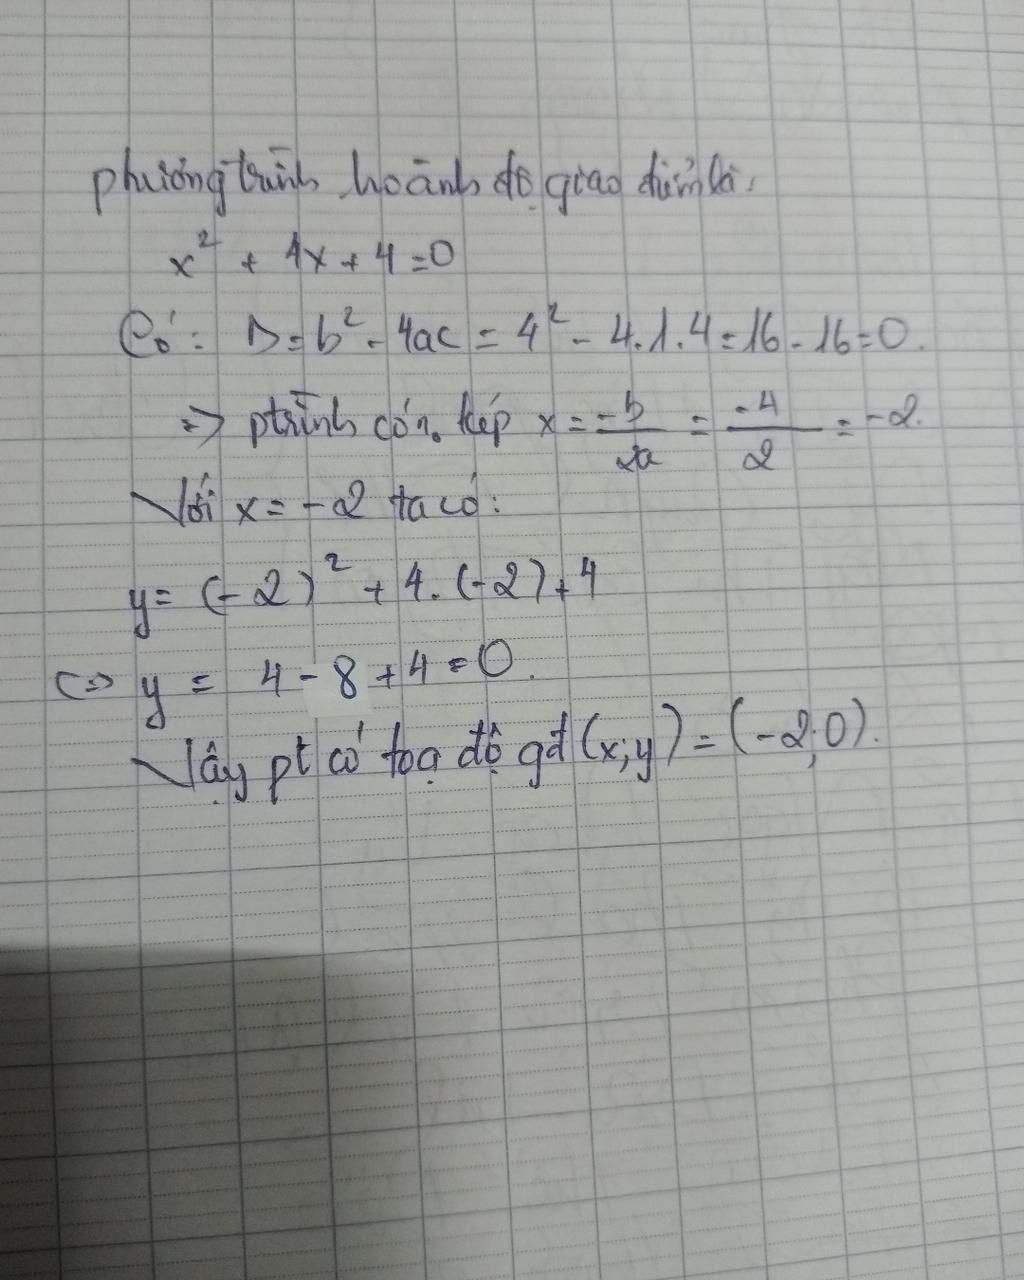 phương trình hoành độ giao điểm là:
x² + 4x + 4 = 0
Có: Δ = b² - 4ac = 4² - 4.1.4 = 16 - 16 = 0.
=> ptrình có n. kép x = -b/2a = -4/2 = -2.
Với x = -2 ta có:
y = (-2)² + 4.(-2) + 4
<=> y = 4 - 8 + 4 = 0.
Vậy pt có toạ độ gđ (x;y) = (-2;0).